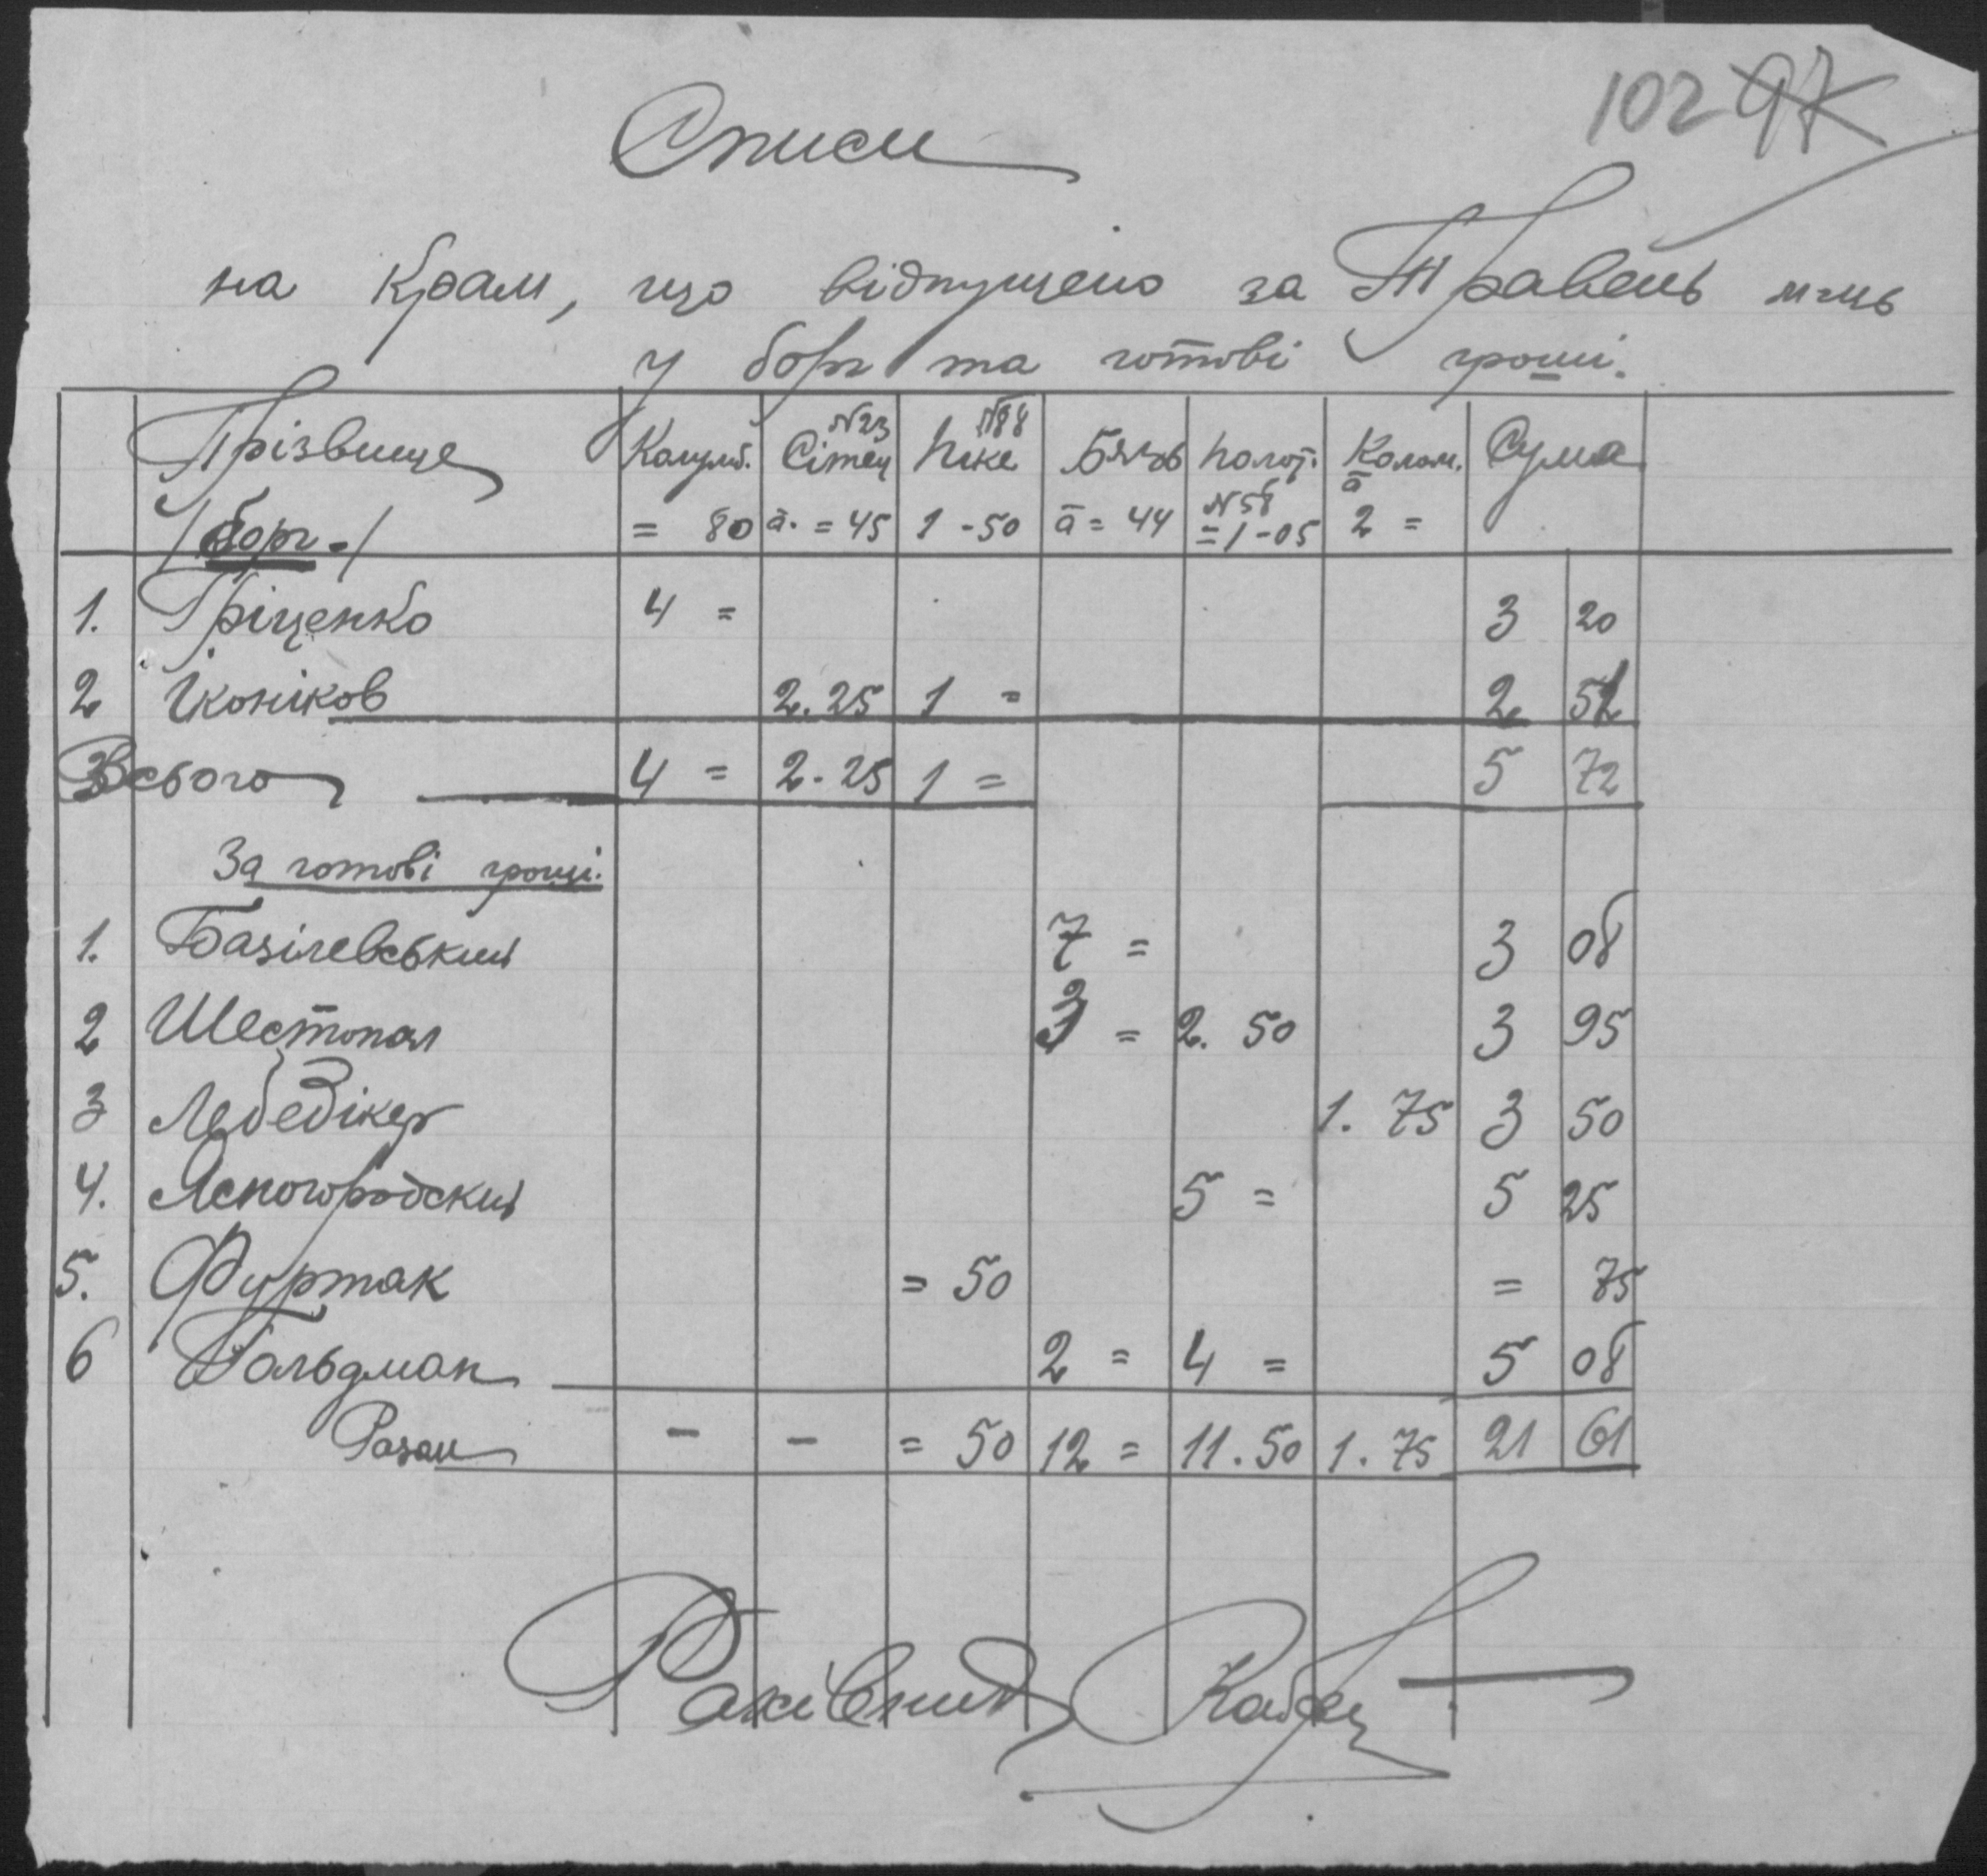 102 97
Списи
на Крам, що відпущено за Травень м-ць
у борг та готові гроші.
Прізвище /борг./ Сітец N23 а. = 45 Піке N88 1 - 50 Бязь а = 44 Полот. N58 = 1 - 05 Колом. а 2 = Сума
= 80
1. Гріценко 4 = 3 20
2 Іконіков 2.25 1 = 2 52
Всього 4 = 2.25 1 = 5 72
За готові гроші.
1. Базілевський 7 = 3 08
2 Шестопал 3 = 2. 50 3 95
3 Лебедікер 1. 75 3 50
4. Ясногородский 5 = 5 25
5. Фуртак = 50 = 75
6 Гольдман 2 = 4 = 5 08
Разом - - = 50 12 = 11.50 1.75 21 61
Рахівник